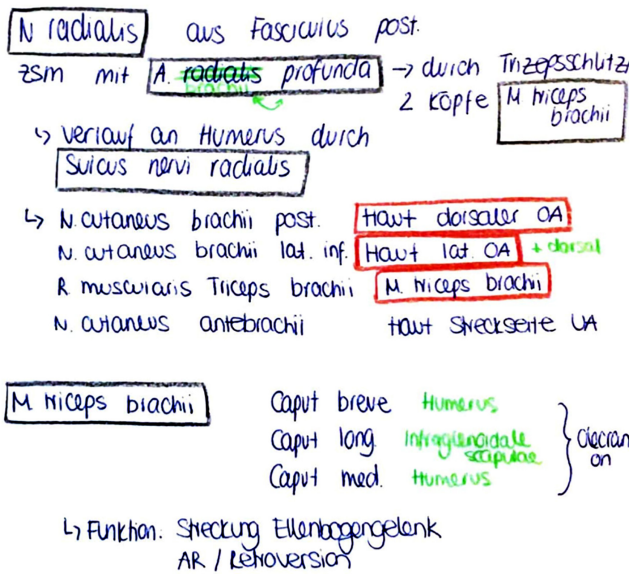 N radialis aus Fasciculus post.
zsm mit A. radialis profunda → durch Trizepsschlitz
brachii
2 Köpfe M triceps
brachii
↳ Verlauf an Humerus durch
Sulcus nervi radialis
↳ N. cutaneus brachii post. Haut dorsaler OA
N. cutaneus brachii lat. inf. Haut lat. OA + dorsal
R muscularis Triceps brachii M. triceps brachii
N. cutaneus antebrachii Haut Streckseite UA
M triceps brachii Caput breve Humerus
Caput long. Infraglenoidale
scapulae
Olecran
on
Caput med. Humerus
↳ Funktion: Streckung Ellenbogengelenk
AR / Retroversion